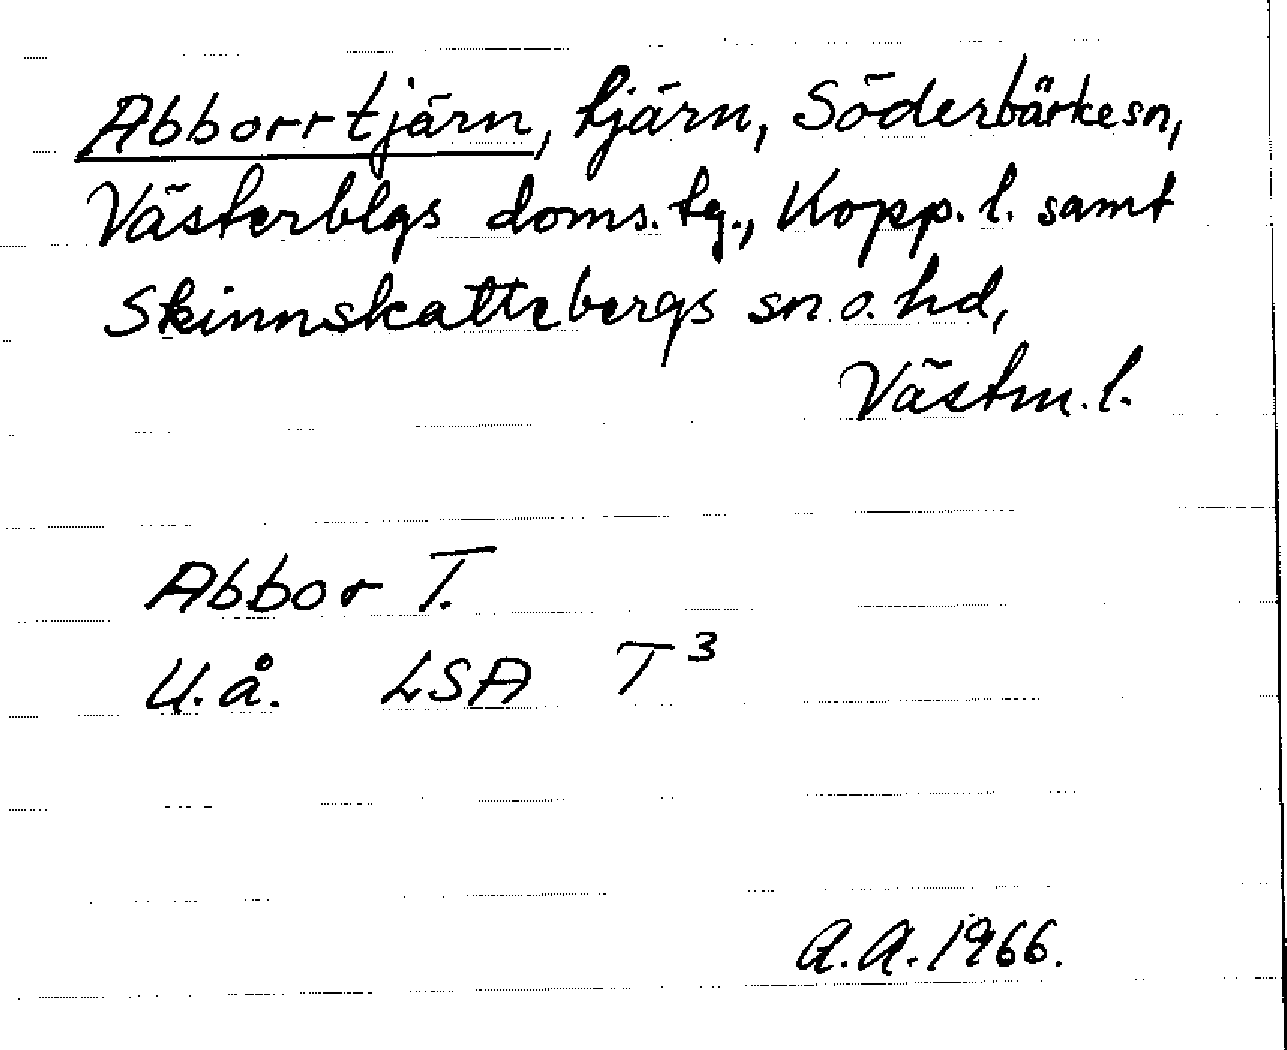 Abborrtjärn, tjärn, Söderbärke sn,
Västerblgs doms. tg., Kopp. l. samt
Skinnskattebergs sn o. hd,
Västm. l.
Abbor T.
U.å. LSA T³
A.A. 1966.